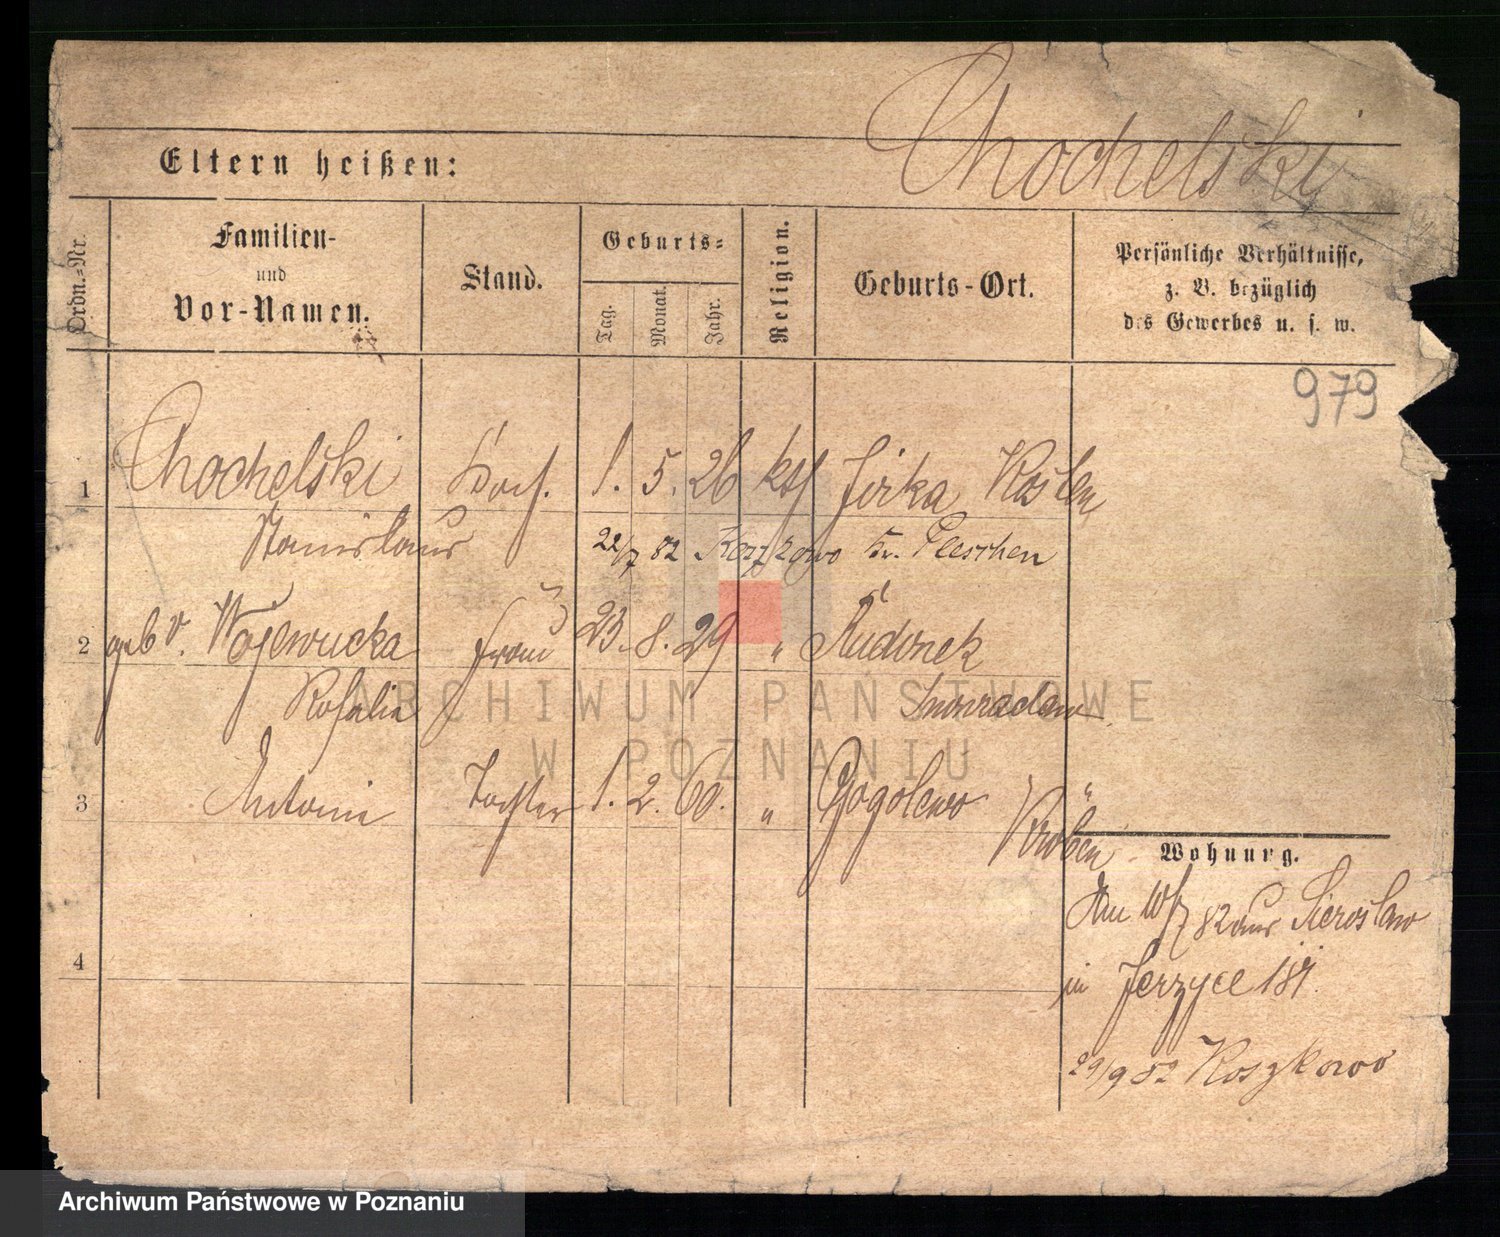 Chochelski
Eltern heißen:
Ordn.-Nr.
Familien-
und
Vor-Namen.
Stand.
Geburts-
Tag.
Monat.
Jahr.
Religion.
Geburts-Ort.
Persönliche Verhältnisse,
z. B. bezüglich
des Gewerbes u. s. w.
979
1 Chochelski Koch. 1. 5. 26 kth Kosten
Stanislaus 22/7 82 Kr. Pleschen
2 geb v. Frau 23. 8. 29 "
Rosalie Inowraclaw
3 Antonie Tochter 1. 2. 60. " Gogolewo "
Kröben
4
Wohnung.
Am 10/7 82 aus Sieroslaw
in Jerzyce
29/9 82 Koszkowo
ARCHIWUM PAŃSTWOWE
W POZNANIU
Archiwum Państwowe w Poznaniu